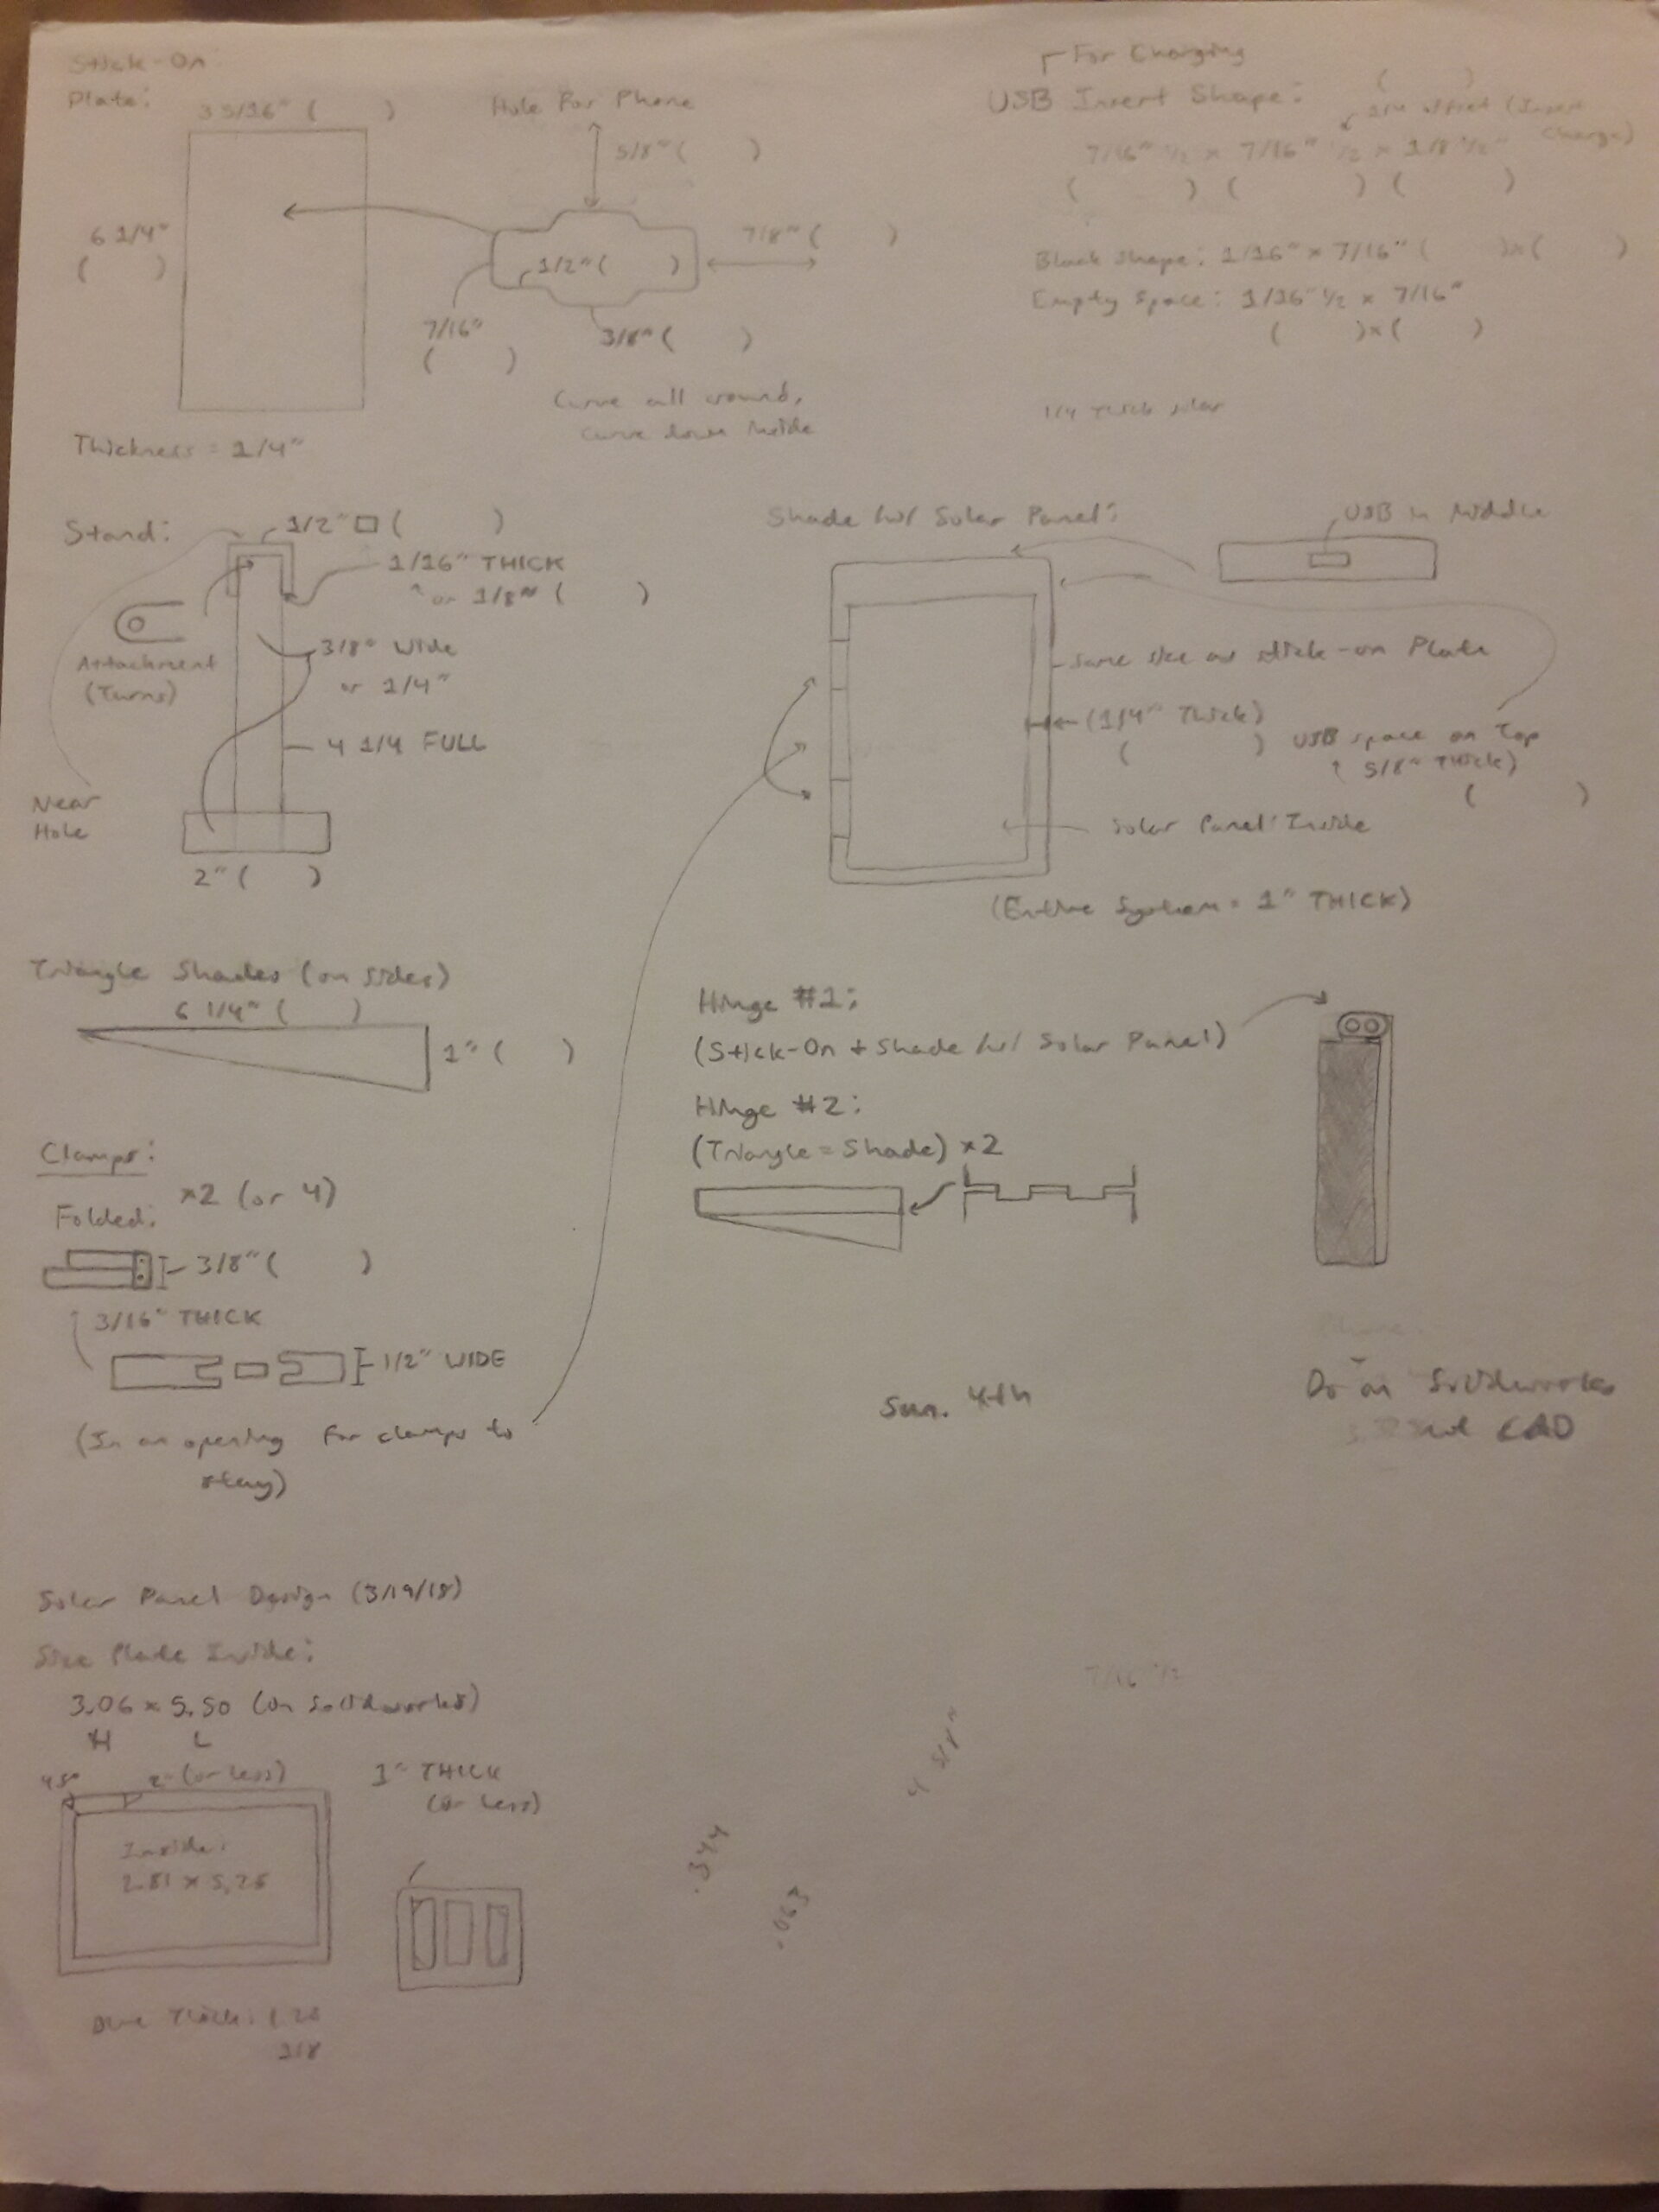 Stick-On
Plate:
3 5/16" (     )
6 1/4"
(     )
Thickness = 1/4"
Hole For Phone
5/8" (     )
7/8" (     )
1/2" (     )
7/16"
(     )
3/8" (     )
Curve all around,
Curve down inside
For Charging
USB Insert Shape:
(     )
1/4 offset (Insert
Charge)
7/16" 1/2 x 7/16" 1/2 x 1/8" 1/2"
(     ) (     ) (     )
Block Shape: 1/16" x 7/16" (     )x(     )
Empty Space: 1/16" 1/2 x 7/16"
(     )x(     )
1/4 Thick solar
Stand:
1/2" □ (     )
1/16" THICK
^ or 1/8" (     )
Attachment
(Turns)
3/8" Wide
or 1/4"
4 1/4 FULL
Near
Hole
2" (     )
Shade w/ Solar Panel:
USB in Middle
Same size as stick-on Plate
(1/4" Thick)
(     )
USB space on Top
↑ 5/8" Thick)
(     )
Solar Panel Inside
(Entire System = 1" THICK)
Triangle Shades (on sides)
6 1/4" (     )
1" (     )
Hinge #1:
(Stick-On + Shade w/ Solar Panel)
Hinge #2:
(Triangle = Shade) x2
Clamps:
Folded:
x2 (or 4)
3/8" (     )
3/16" THICK
1/2" WIDE
(In an opening for clamps to
stay)
Sun. 4th
Phone:
Do on Solidworks
not CAD
Solar Panel Design (3/19/18)
Size Plate Inside:
3.06 x 5.50 (on Solidworks)
H L
45°
2" (or less)
1" THICK
(or Less)
Inside:
2.81 x 5.25
Thick: 1.25
1/8
7/16 1/2
4 5/8"
.344
.063